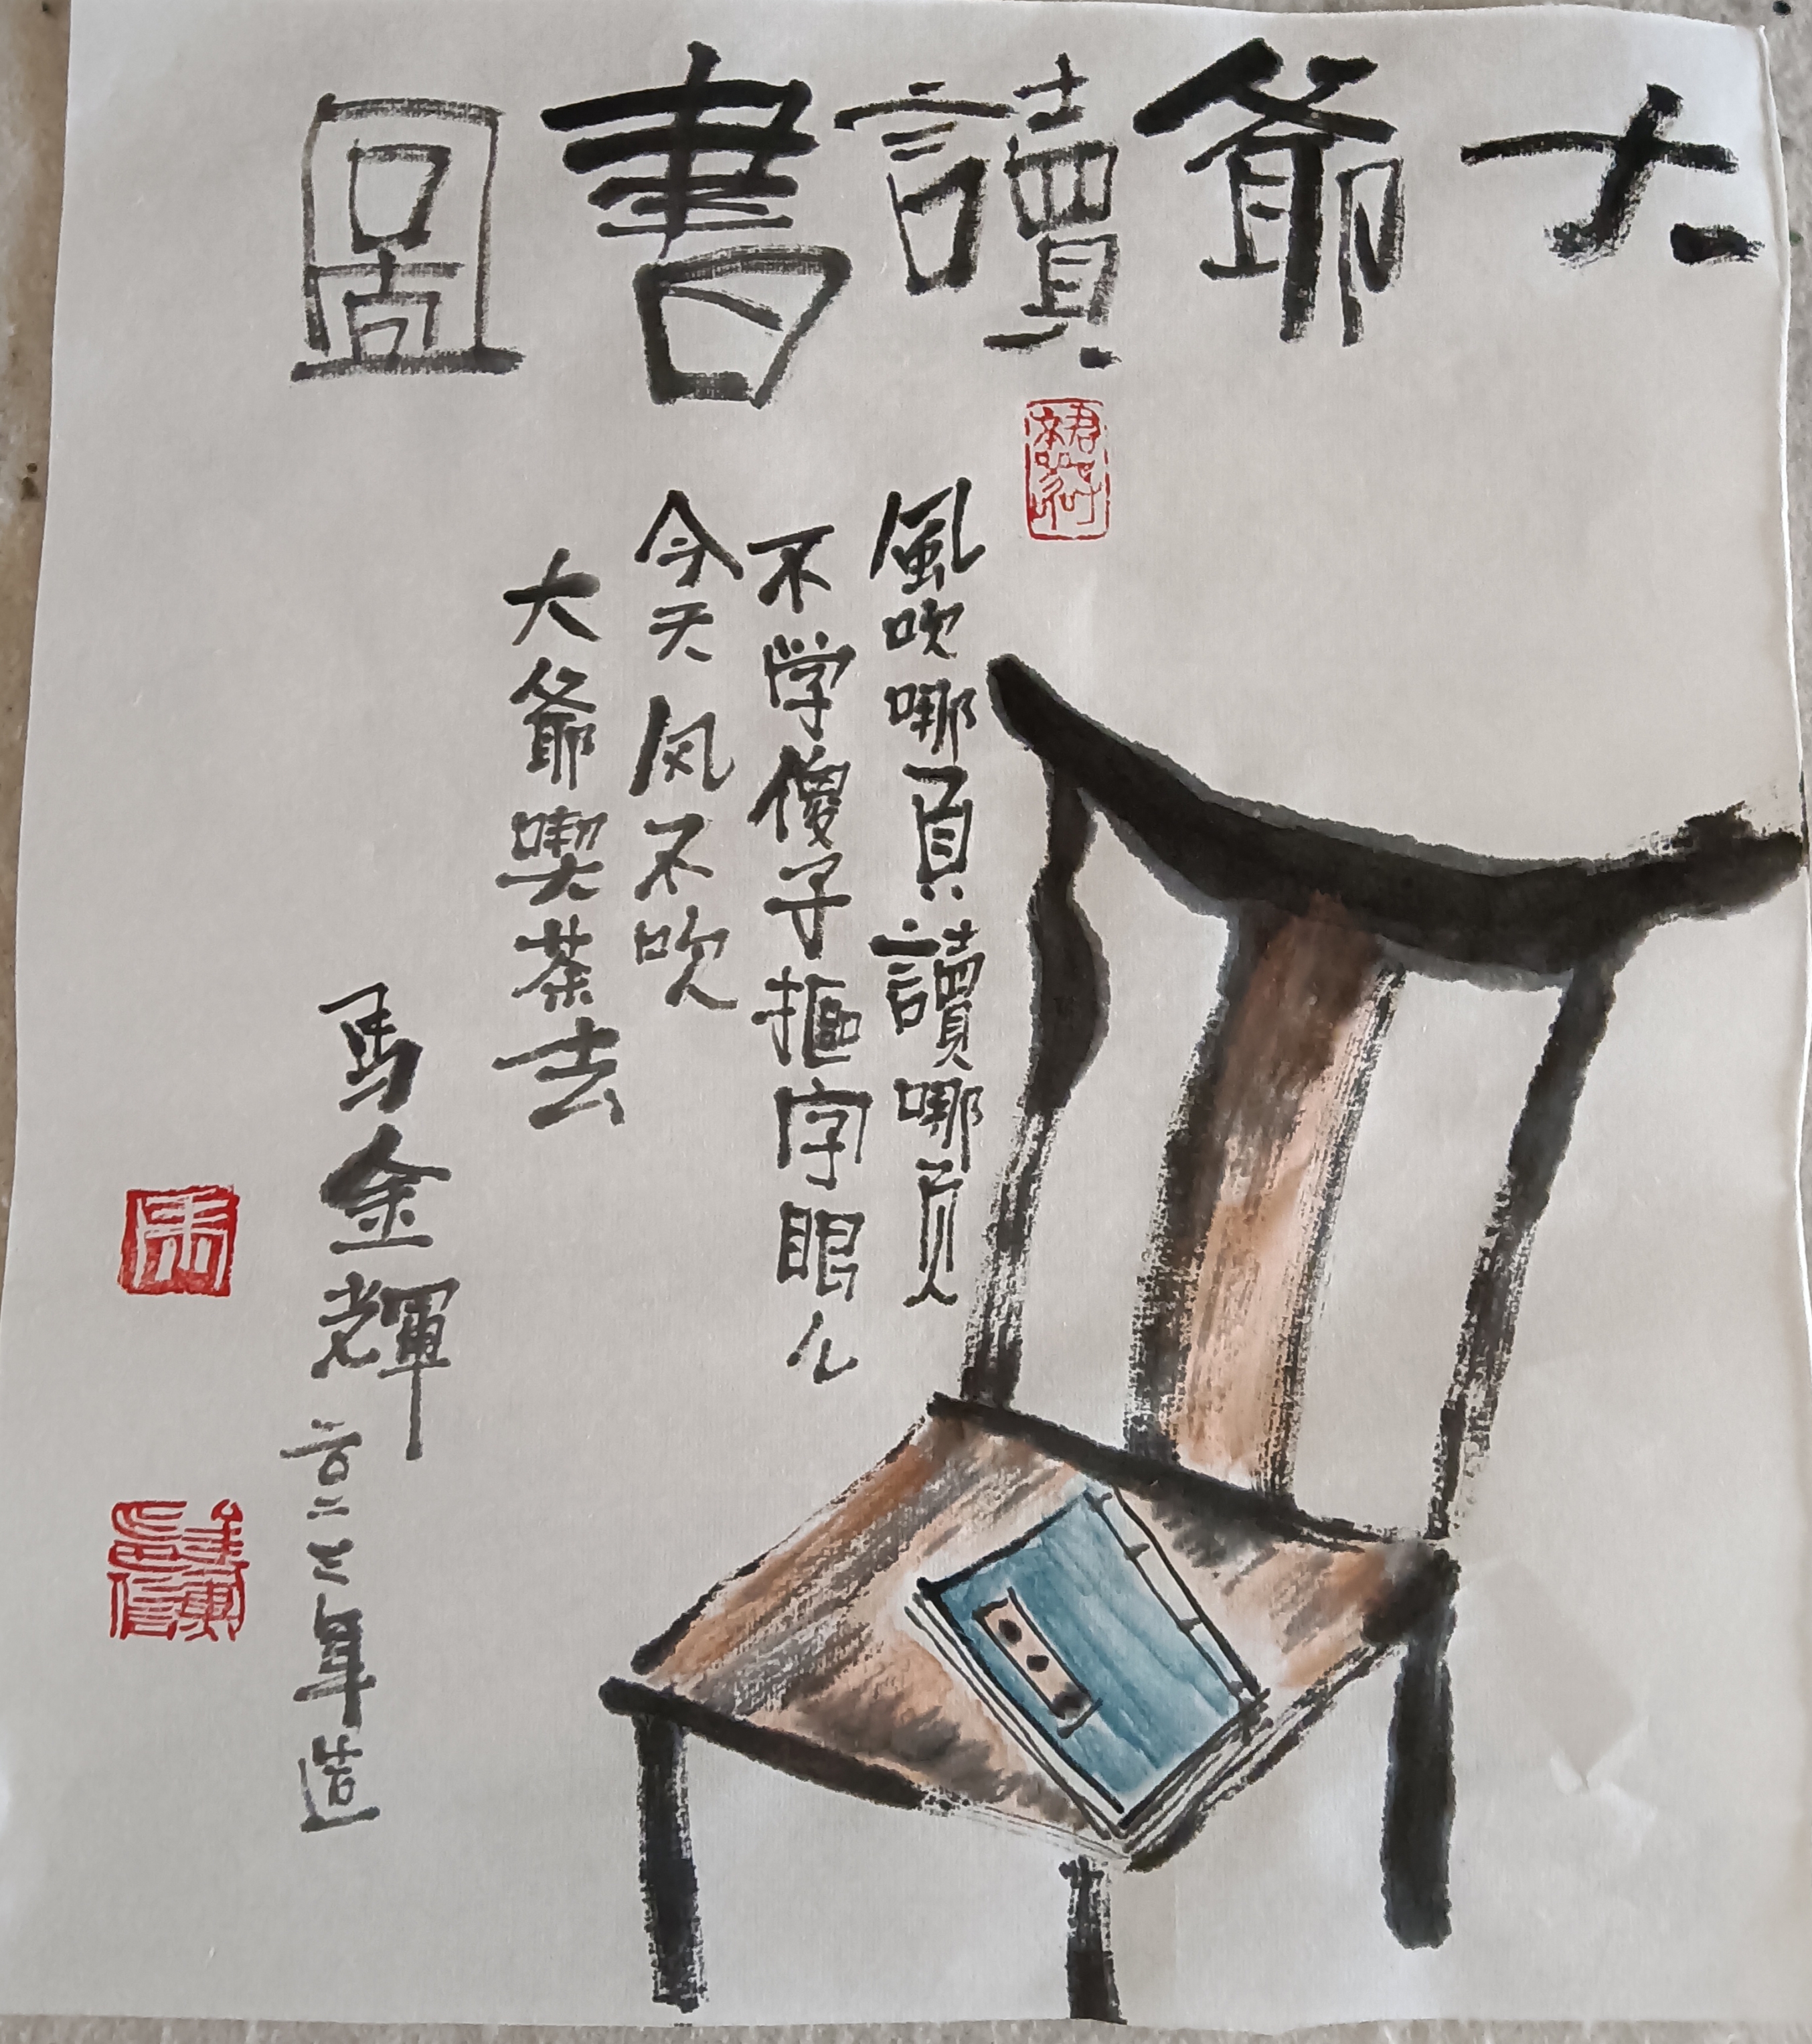 大爺讀書圖
風吹哪頁讀哪页
不学傻子摳字眼儿
今天风不吹
大爺喫茶去
馬金輝 年造